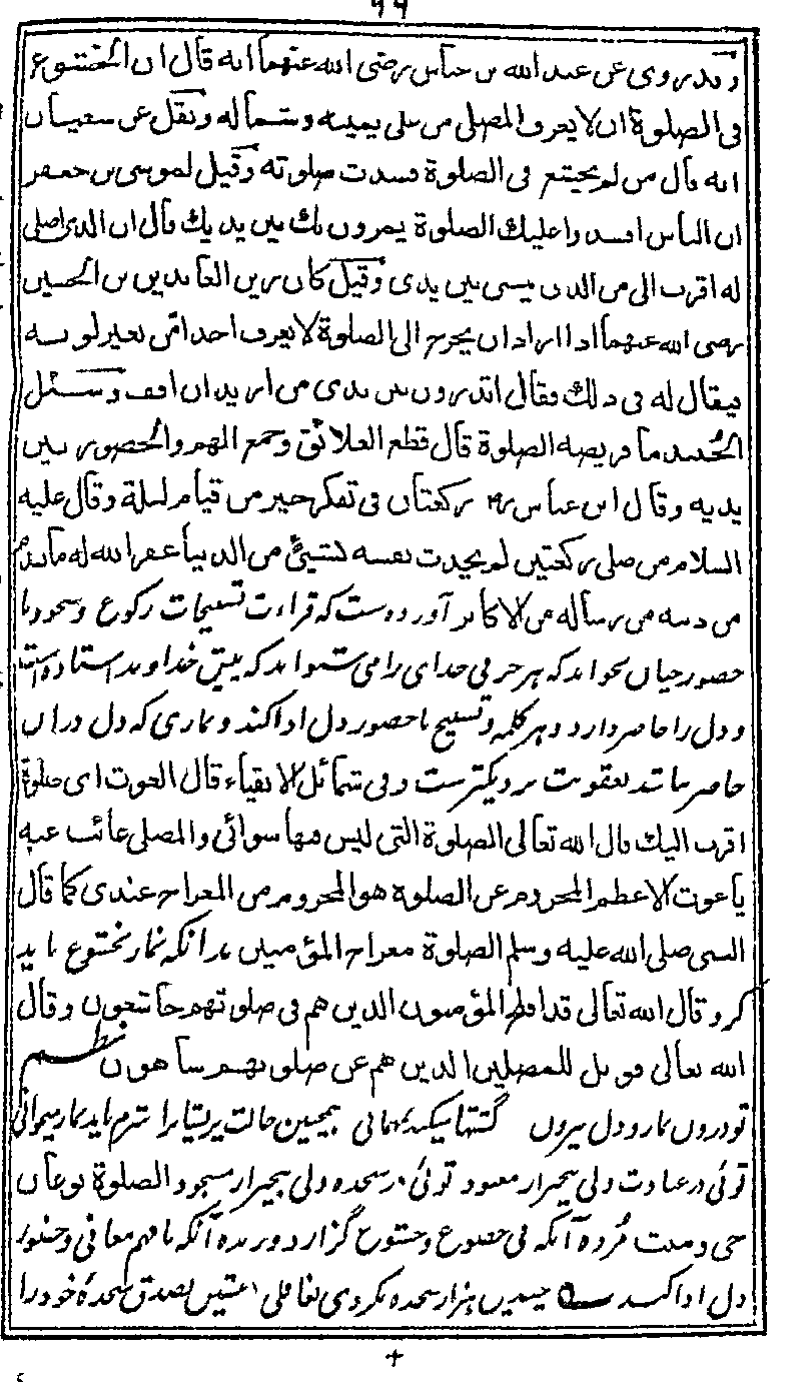 ٩٩
وقد روى عن عبد الله بن عباس رضى الله عنهما انه قال ان الخشوع
فى الصلوة ان لا يعرف المصلى من على يمينه وشماله ونقل عن سفيان
انه قال من لم يخشع فى الصلوة فسدت صلوته وقيل لموسى بن جعفر
ان الناس افسدوا عليك الصلوة يمرون بك بين يديك قال ان الذى اصلى
له اقرب الى من الذين يمشى بين يدى وقيل كان زين العابدين بن الحسين
رضى الله عنهما اذا اراد ان يخرج الى الصلوة لا يعرف احدا من تغير لونه
فيقال له فى ذلك فقال اتدرون بين يدى من اريد ان اقف وسئل
الجنيد ما فريضه الصلوة قال قطع العلائق وجمع الهم والحضور بين
يديه وقال ابن عباس رض ركعتان فى تفكر خير من قيام ليلة وقال عليه
السلام من صلى ركعتين لم يحدث نفسه بشيئ من الدنيا غفر الله له ما تقدم
من ذنبه من رساله من الاكابر آورده ست كه قراءت تسبيحات ركوع وسجود با
حضور چنان بخواند كه هر حرفى خداى را مى شنواند كه پيش خداوند استاده است
و دل را حاضر دارد و هر كلمه وتسبيح با حضور دل ادا كند و نمازى كه دل در ان
حاضر نباشد بعقوبت نزديكترست وفى شمائل الاتقياء قال الغوث اى صلوة
اقرب اليك قال الله تعالى الصلوة التى ليس فيها سوائى والمصلى غائب عنه
يا غوث الاعظم المحروم عن الصلوة هو المحروم من المعراج عندى كما قال
النبى صلى الله عليه وسلم الصلوة معراج المؤمنين بدانكه نماز بخشوع بايد
كرد قال الله تعالى قد افلح المؤمنون الذين هم فى صلوتهم خاشعون وقال
الله تعالى فويل للمصلين الذين هم عن صلوتهم ساهون نظم
تو درون نماز و دل بيرون گشتها ميكند بمهمانى همچنين حالت پريشانرا شرم نايد نماز ميخوانى
توئى در عبادت دلى بيخبر از معبود توئى در سجده دلى بيخبر از مسجود الصلوة نوعان
حى وميت مرده آنكه بى خضوع وخشوع گزارد و زنده آنكه با فهم معانى وحضور
دل ادا كند هزار سجده بكردى بغافلى بصدق سجده خود را